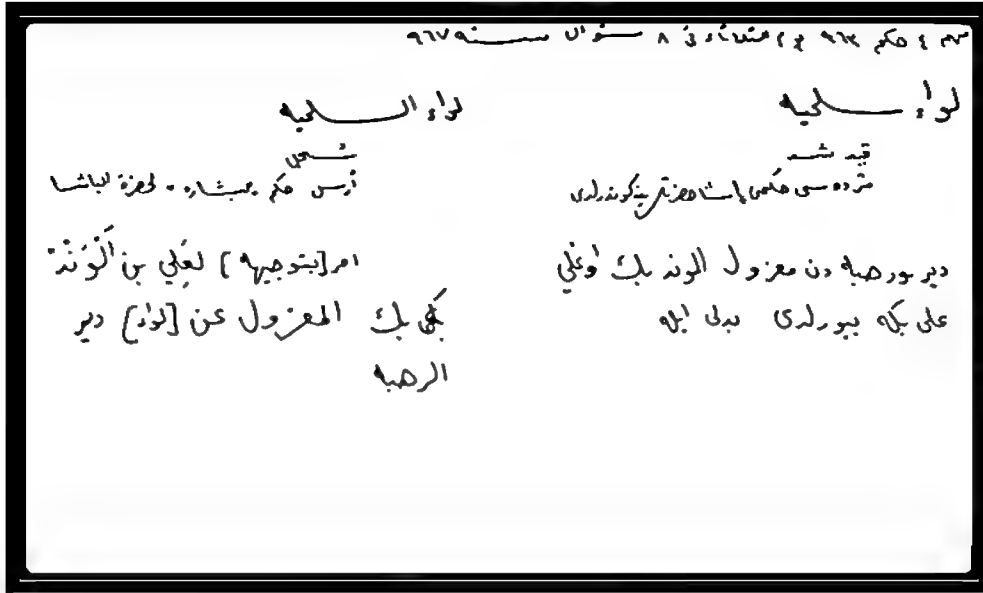 مهم ٤ حكم ٩٦٣ يوم الثلاثاء في ٨ شوال سنه ٩٦٧
لواء سلميه
قيد شد
مژده سى حكمى پاشا حضرتلرينه كوندرلدى
دير ورحبه دن معزول الوند بك اوغلي
على بكه بيورلدى بدلى ايله
لواء السلميه
سُجل
أرسل حكم بشاره لحضرة الباشا
امر [بتوجيهه] لعَلي بن أَلْوَنْدْ
بك المعزول عن [لواء] دير
الرحبه